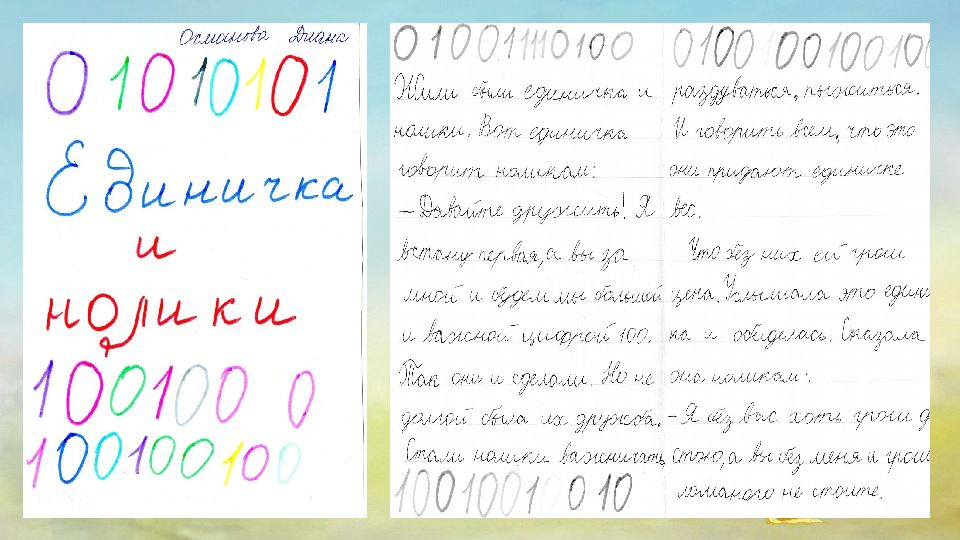 Османова Диана
0 1 0 1 0 1 0 1
Единичка
и
нолики
1 0 0 1 0 0 0
1 0 0 1 0 0 1 0 0
0 1 0 0 1 1 1 1 0 1 0 0
Жили были единичка и
нолики. Вот единичка
говорит ноликам:
– Давайте дружить! Я
встану первая, а вы за
мной и будем мы большой
и важной цифрой 100.
Так они и сделали. Но не
долгой была их дружба.
Стали нолики важничать,
1 0 0 1 0 0 1 0 0 1 0
0 1 0 0 1 0 0 1 0 0 1 0 0
раздуваться, пыжиться.
И говорить всем, что это
они придают единичке
вес.
Что без них ей грош
цена. Услышала это едини
ка и обиделась. Сказала
она ноликам:
– Я без вас хоть грош д
стою, а вы без меня и грош
ломаного не стоите.